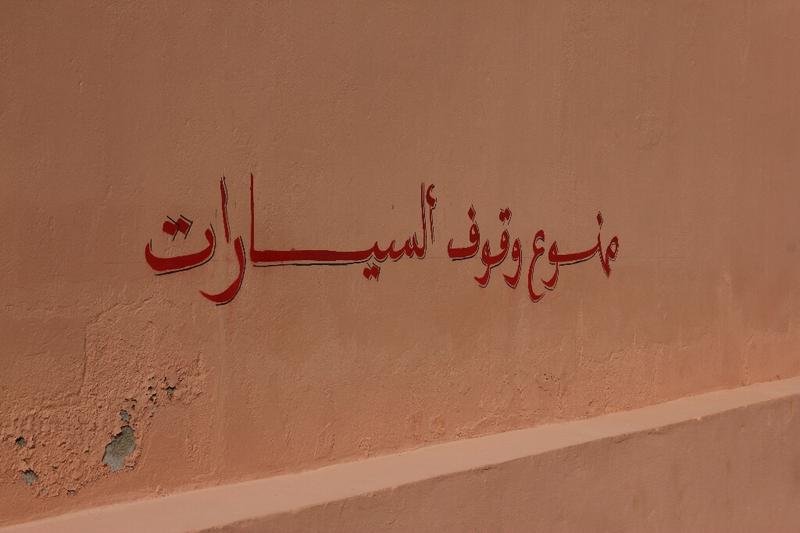 ممنوع وقوف ألسيارات